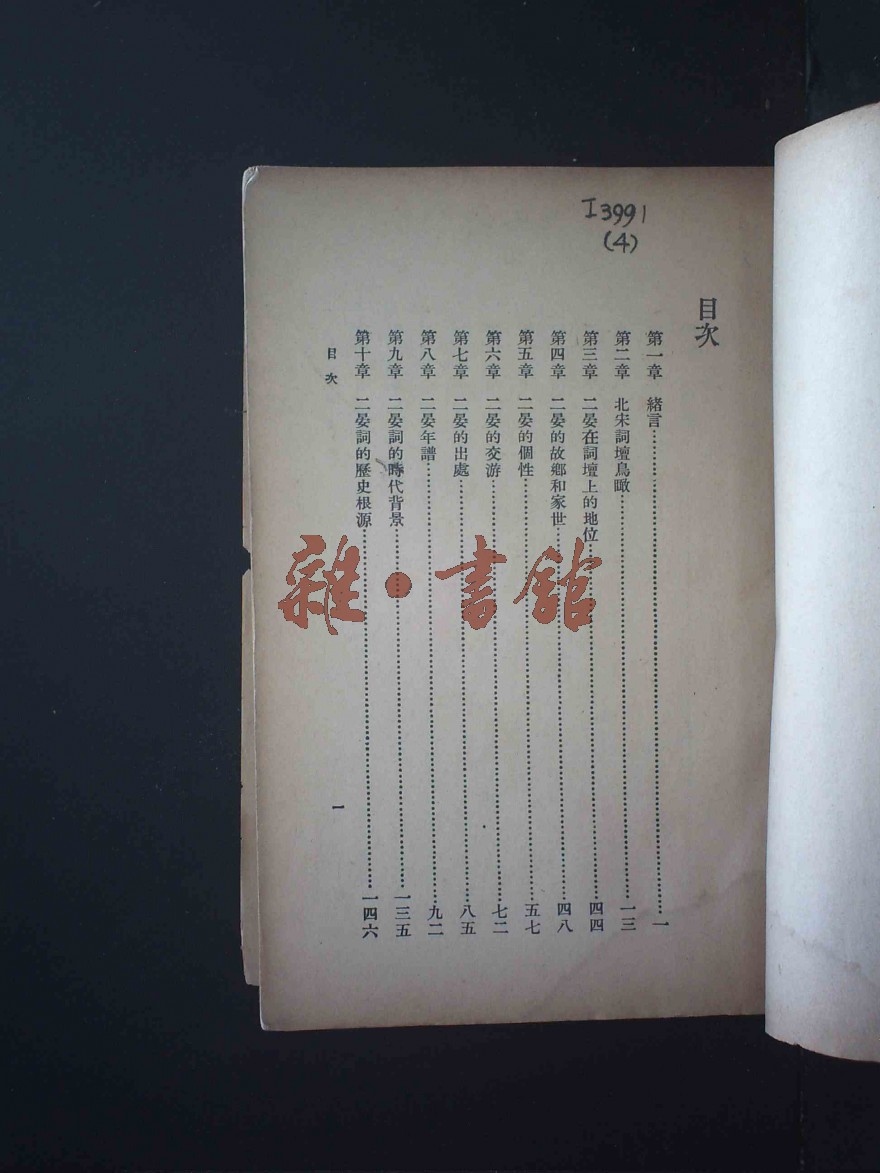 I3991
(4)
目次
第一章 緒言……一
第二章 北宋詞壇鳥瞰……一三
第三章 二晏在詞壇上的地位……四四
第四章 二晏的故鄉和家世……四八
第五章 二晏的個性……五七
第六章 二晏的交游……七二
第七章 二晏的出處……八五
第八章 二晏年譜……九二
第九章 二晏詞的時代背景……一三五
第十章 二晏詞的歷史根源……一四六
目次
一
雜·書館